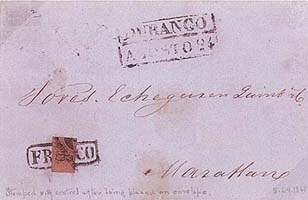 DURANGO
AGOSTO 24
Sores. Echeguren
FRANCO
Mazatlan
Stamped with control after being placed on envelope.